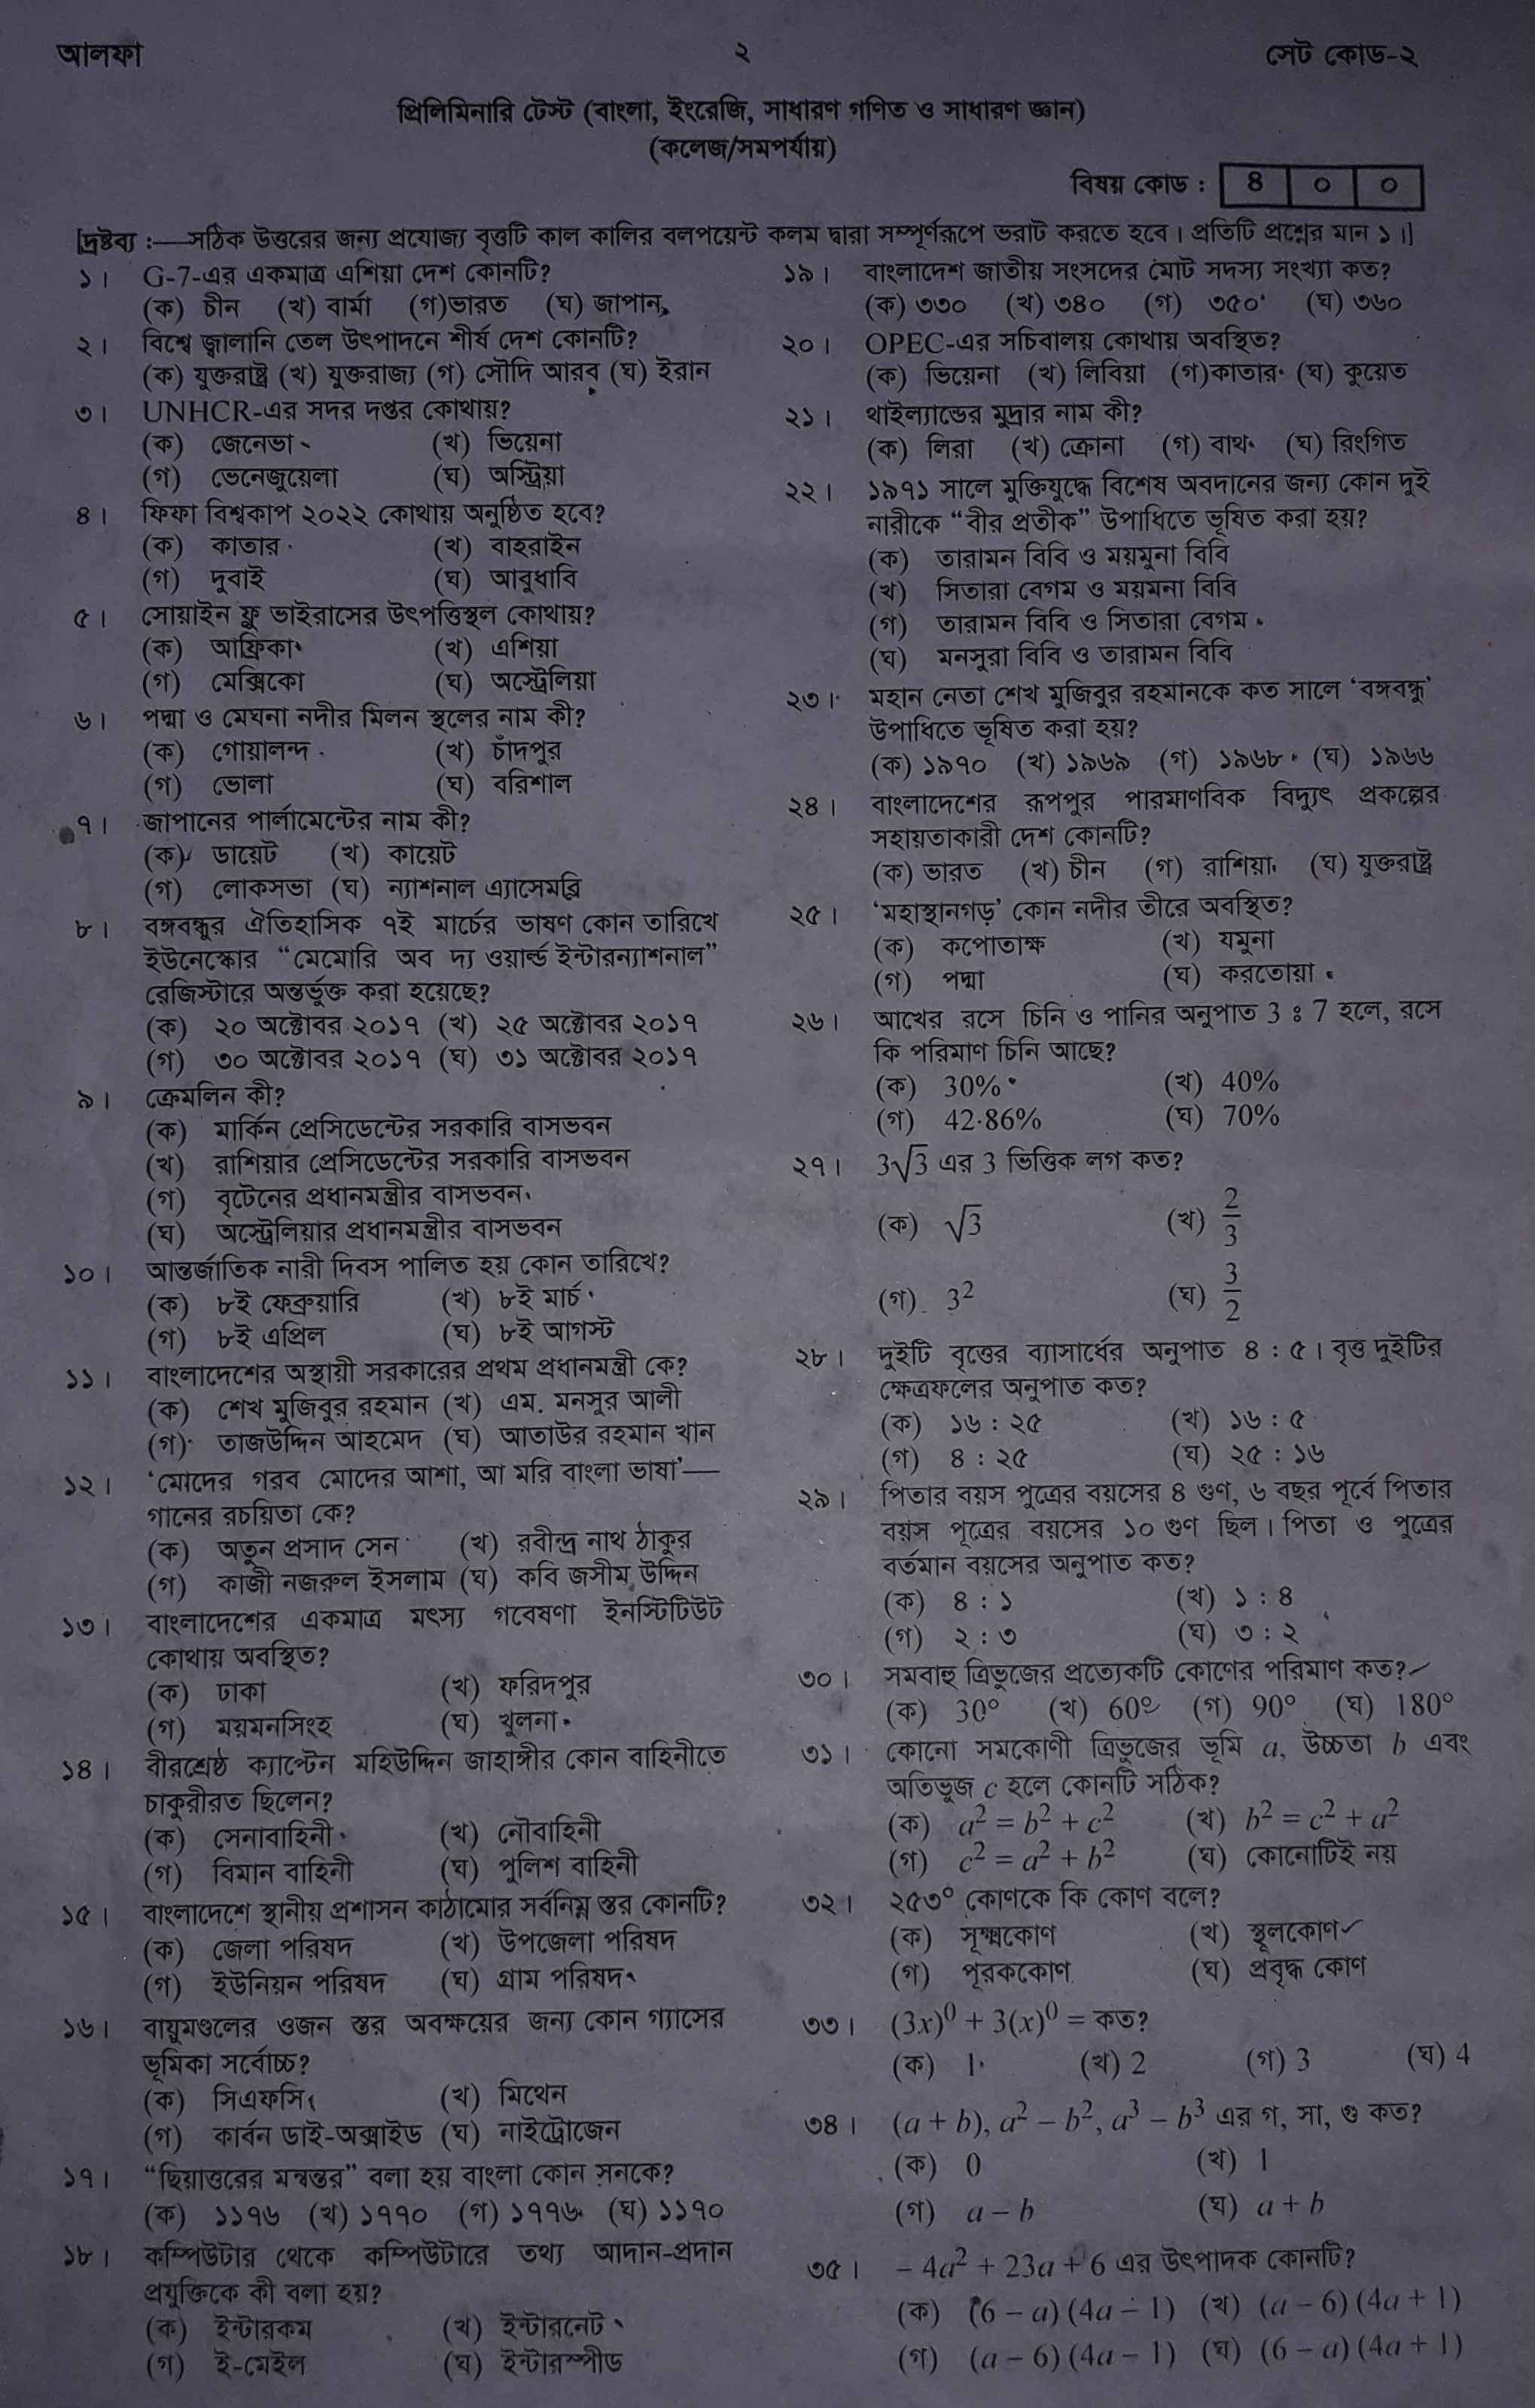 আলফা
২
সেট কোড-২
প্রিলিমিনারি টেস্ট (বাংলা, ইংরেজি, সাধারণ গণিত ও সাধারণ জ্ঞান)
(কলেজ/সমপর্যায়)
বিষয় কোড : ৪ ০ ০
[দ্রষ্টব্য :—সঠিক উত্তরের জন্য প্রযোজ্য বৃত্তটি কাল কালির বলপয়েন্ট কলম দ্বারা সম্পূর্ণরূপে ভরাট করতে হবে। প্রতিটি প্রশ্নের মান ১।]
১। G-7-এর একমাত্র এশিয়া দেশ কোনটি?
(ক) চীন (খ) বার্মা (গ)ভারত (ঘ) জাপান
২। বিশ্বে জ্বালানি তেল উৎপাদনে শীর্ষ দেশ কোনটি?
(ক) যুক্তরাষ্ট্র (খ) যুক্তরাজ্য (গ) সৌদি আরব (ঘ) ইরান
৩। UNHCR-এর সদর দপ্তর কোথায়?
(ক) জেনেভা (খ) ভিয়েনা
(গ) ভেনেজুয়েলা (ঘ) অস্ট্রিয়া
৪। ফিফা বিশ্বকাপ ২০২২ কোথায় অনুষ্ঠিত হবে?
(ক) কাতার (খ) বাহরাইন
(গ) দুবাই (ঘ) আবুধাবি
৫। সোয়াইন ফ্লু ভাইরাসের উৎপত্তিস্থল কোথায়?
(ক) আফ্রিকা (খ) এশিয়া
(গ) মেক্সিকো (ঘ) অস্ট্রেলিয়া
৬। পদ্মা ও মেঘনা নদীর মিলন স্থলের নাম কী?
(ক) গোয়ালন্দ (খ) চাঁদপুর
(গ) ভোলা (ঘ) বরিশাল
৭। জাপানের পার্লামেন্টের নাম কী?
(ক) ডায়েট (খ) কায়েট
(গ) লোকসভা (ঘ) ন্যাশনাল এ্যাসেমব্লি
৮। বঙ্গবন্ধুর ঐতিহাসিক ৭ই মার্চের ভাষণ কোন তারিখে
ইউনেস্কোর “মেমোরি অব দ্য ওয়ার্ল্ড ইন্টারন্যাশনাল”
রেজিস্টারে অন্তর্ভুক্ত করা হয়েছে?
(ক) ২০ অক্টোবর ২০১৭ (খ) ২৫ অক্টোবর ২০১৭
(গ) ৩০ অক্টোবর ২০১৭ (ঘ) ৩১ অক্টোবর ২০১৭
৯। ক্রেমলিন কী?
(ক) মার্কিন প্রেসিডেন্টের সরকারি বাসভবন
(খ) রাশিয়ার প্রেসিডেন্টের সরকারি বাসভবন
(গ) বৃটেনের প্রধানমন্ত্রীর বাসভবন
(ঘ) অস্ট্রেলিয়ার প্রধানমন্ত্রীর বাসভবন
১০। আন্তর্জাতিক নারী দিবস পালিত হয় কোন তারিখে?
(ক) ৮ই ফেব্রুয়ারি (খ) ৮ই মার্চ
(গ) ৮ই এপ্রিল (ঘ) ৮ই আগস্ট
১১। বাংলাদেশের অস্থায়ী সরকারের প্রথম প্রধানমন্ত্রী কে?
(ক) শেখ মুজিবুর রহমান (খ) এম. মনসুর আলী
(গ) তাজউদ্দিন আহমেদ (ঘ) আতাউর রহমান খান
১২। ‘মোদের গরব মোদের আশা, আ মরি বাংলা ভাষা’—
গানের রচয়িতা কে?
(ক) অতুন প্রসাদ সেন (খ) রবীন্দ্র নাথ ঠাকুর
(গ) কাজী নজরুল ইসলাম (ঘ) কবি জসীম উদ্দিন
১৩। বাংলাদেশের একমাত্র মৎস্য গবেষণা ইনস্টিটিউট
কোথায় অবস্থিত?
(ক) ঢাকা (খ) ফরিদপুর
(গ) ময়মনসিংহ (ঘ) খুলনা
১৪। বীরশ্রেষ্ঠ ক্যাপ্টেন মহিউদ্দিন জাহাঙ্গীর কোন বাহিনীতে
চাকুরীরত ছিলেন?
(ক) সেনাবাহিনী (খ) নৌবাহিনী
(গ) বিমান বাহিনী (ঘ) পুলিশ বাহিনী
১৫। বাংলাদেশে স্থানীয় প্রশাসন কাঠামোর সর্বনিম্ন স্তর কোনটি?
(ক) জেলা পরিষদ (খ) উপজেলা পরিষদ
(গ) ইউনিয়ন পরিষদ (ঘ) গ্রাম পরিষদ
১৬। বায়ুমণ্ডলের ওজন স্তর অবক্ষয়ের জন্য কোন গ্যাসের
ভূমিকা সর্বোচ্চ?
(ক) সিএফসি (খ) মিথেন
(গ) কার্বন ডাই-অক্সাইড (ঘ) নাইট্রোজেন
১৭। “ছিয়াত্তরের মন্বন্তর” বলা হয় বাংলা কোন সনকে?
(ক) ১১৭৬ (খ) ১৭৭০ (গ) ১৭৭৬ (ঘ) ১১৭০
১৮। কম্পিউটার থেকে কম্পিউটারে তথ্য আদান-প্রদান
প্রযুক্তিকে কী বলা হয়?
(ক) ইন্টারকম (খ) ইন্টারনেট
(গ) ই-মেইল (ঘ) ইন্টারস্পীড
১৯। বাংলাদেশ জাতীয় সংসদের মোট সদস্য সংখ্যা কত?
(ক) ৩৩০ (খ) ৩৪০ (গ) ৩৫০ (ঘ) ৩৬০
২০। OPEC-এর সচিবালয় কোথায় অবস্থিত?
(ক) ভিয়েনা (খ) লিবিয়া (গ)কাতার (ঘ) কুয়েত
২১। থাইল্যান্ডের মুদ্রার নাম কী?
(ক) লিরা (খ) ক্রোনা (গ) বাথ (ঘ) রিংগিত
২২। ১৯৭১ সালে মুক্তিযুদ্ধে বিশেষ অবদানের জন্য কোন দুই
নারীকে “বীর প্রতীক” উপাধিতে ভূষিত করা হয়?
(ক) তারামন বিবি ও ময়মুনা বিবি
(খ) সিতারা বেগম ও ময়মনা বিবি
(গ) তারামন বিবি ও সিতারা বেগম
(ঘ) মনসুরা বিবি ও তারামন বিবি
২৩। মহান নেতা শেখ মুজিবুর রহমানকে কত সালে ‘বঙ্গবন্ধু’
উপাধিতে ভূষিত করা হয়?
(ক) ১৯৭০ (খ) ১৯৬৯ (গ) ১৯৬৮ (ঘ) ১৯৬৬
২৪। বাংলাদেশের রূপপুর পারমাণবিক বিদ্যুৎ প্রকল্পের
সহায়তাকারী দেশ কোনটি?
(ক) ভারত (খ) চীন (গ) রাশিয়া (ঘ) যুক্তরাষ্ট্র
২৫। ‘মহাস্থানগড়’ কোন নদীর তীরে অবস্থিত?
(ক) কপোতাক্ষ (খ) যমুনা
(গ) পদ্মা (ঘ) করতোয়া
২৬। আখের রসে চিনি ও পানির অনুপাত 3 ঃ 7 হলে, রসে
কি পরিমাণ চিনি আছে?
(ক) 30% (খ) 40%
(গ) 42·86% (ঘ) 70%
২৭। 3√3 এর 3 ভিত্তিক লগ কত?
(ক) √3 (খ) 2/3
(গ) 3² (ঘ) 3/2
২৮। দুইটি বৃত্তের ব্যাসার্ধের অনুপাত ৪ : ৫। বৃত্ত দুইটির
ক্ষেত্রফলের অনুপাত কত?
(ক) ১৬ : ২৫ (খ) ১৬ : ৫
(গ) ৪ : ২৫ (ঘ) ২৫ : ১৬
২৯। পিতার বয়স পুত্রের বয়সের ৪ গুণ, ৬ বছর পূর্বে পিতার
বয়স পূত্রের বয়সের ১০ গুণ ছিল। পিতা ও পুত্রের
বর্তমান বয়সের অনুপাত কত?
(ক) ৪ : ১ (খ) ১ : ৪
(গ) ২ : ৩ (ঘ) ৩ : ২
৩০। সমবাহু ত্রিভুজের প্রত্যেকটি কোণের পরিমাণ কত?
(ক) 30° (খ) 60° (গ) 90° (ঘ) 180°
৩১। কোনো সমকোণী ত্রিভুজের ভূমি a, উচ্চতা b এবং
অতিভুজ c হলে কোনটি সঠিক?
(ক) a² = b² + c² (খ) b² = c² + a²
(গ) c² = a² + b² (ঘ) কোনোটিই নয়
৩২। ২৫৩° কোণকে কি কোণ বলে?
(ক) সূক্ষ্মকোণ (খ) স্থূলকোণ
(গ) পূরককোণ (ঘ) প্রবৃদ্ধ কোণ
৩৩। (3x)⁰ + 3(x)⁰ = কত?
(ক) 1 (খ) 2 (গ) 3 (ঘ) 4
৩৪। (a + b), a² − b², a³ − b³ এর গ, সা, গু কত?
(ক) 0 (খ) 1
(গ) a − b (ঘ) a + b
৩৫। − 4a² + 23a + 6 এর উৎপাদক কোনটি?
(ক) (6 − a) (4a − 1) (খ) (a − 6) (4a + 1)
(গ) (a − 6) (4a − 1) (ঘ) (6 − a) (4a + 1)